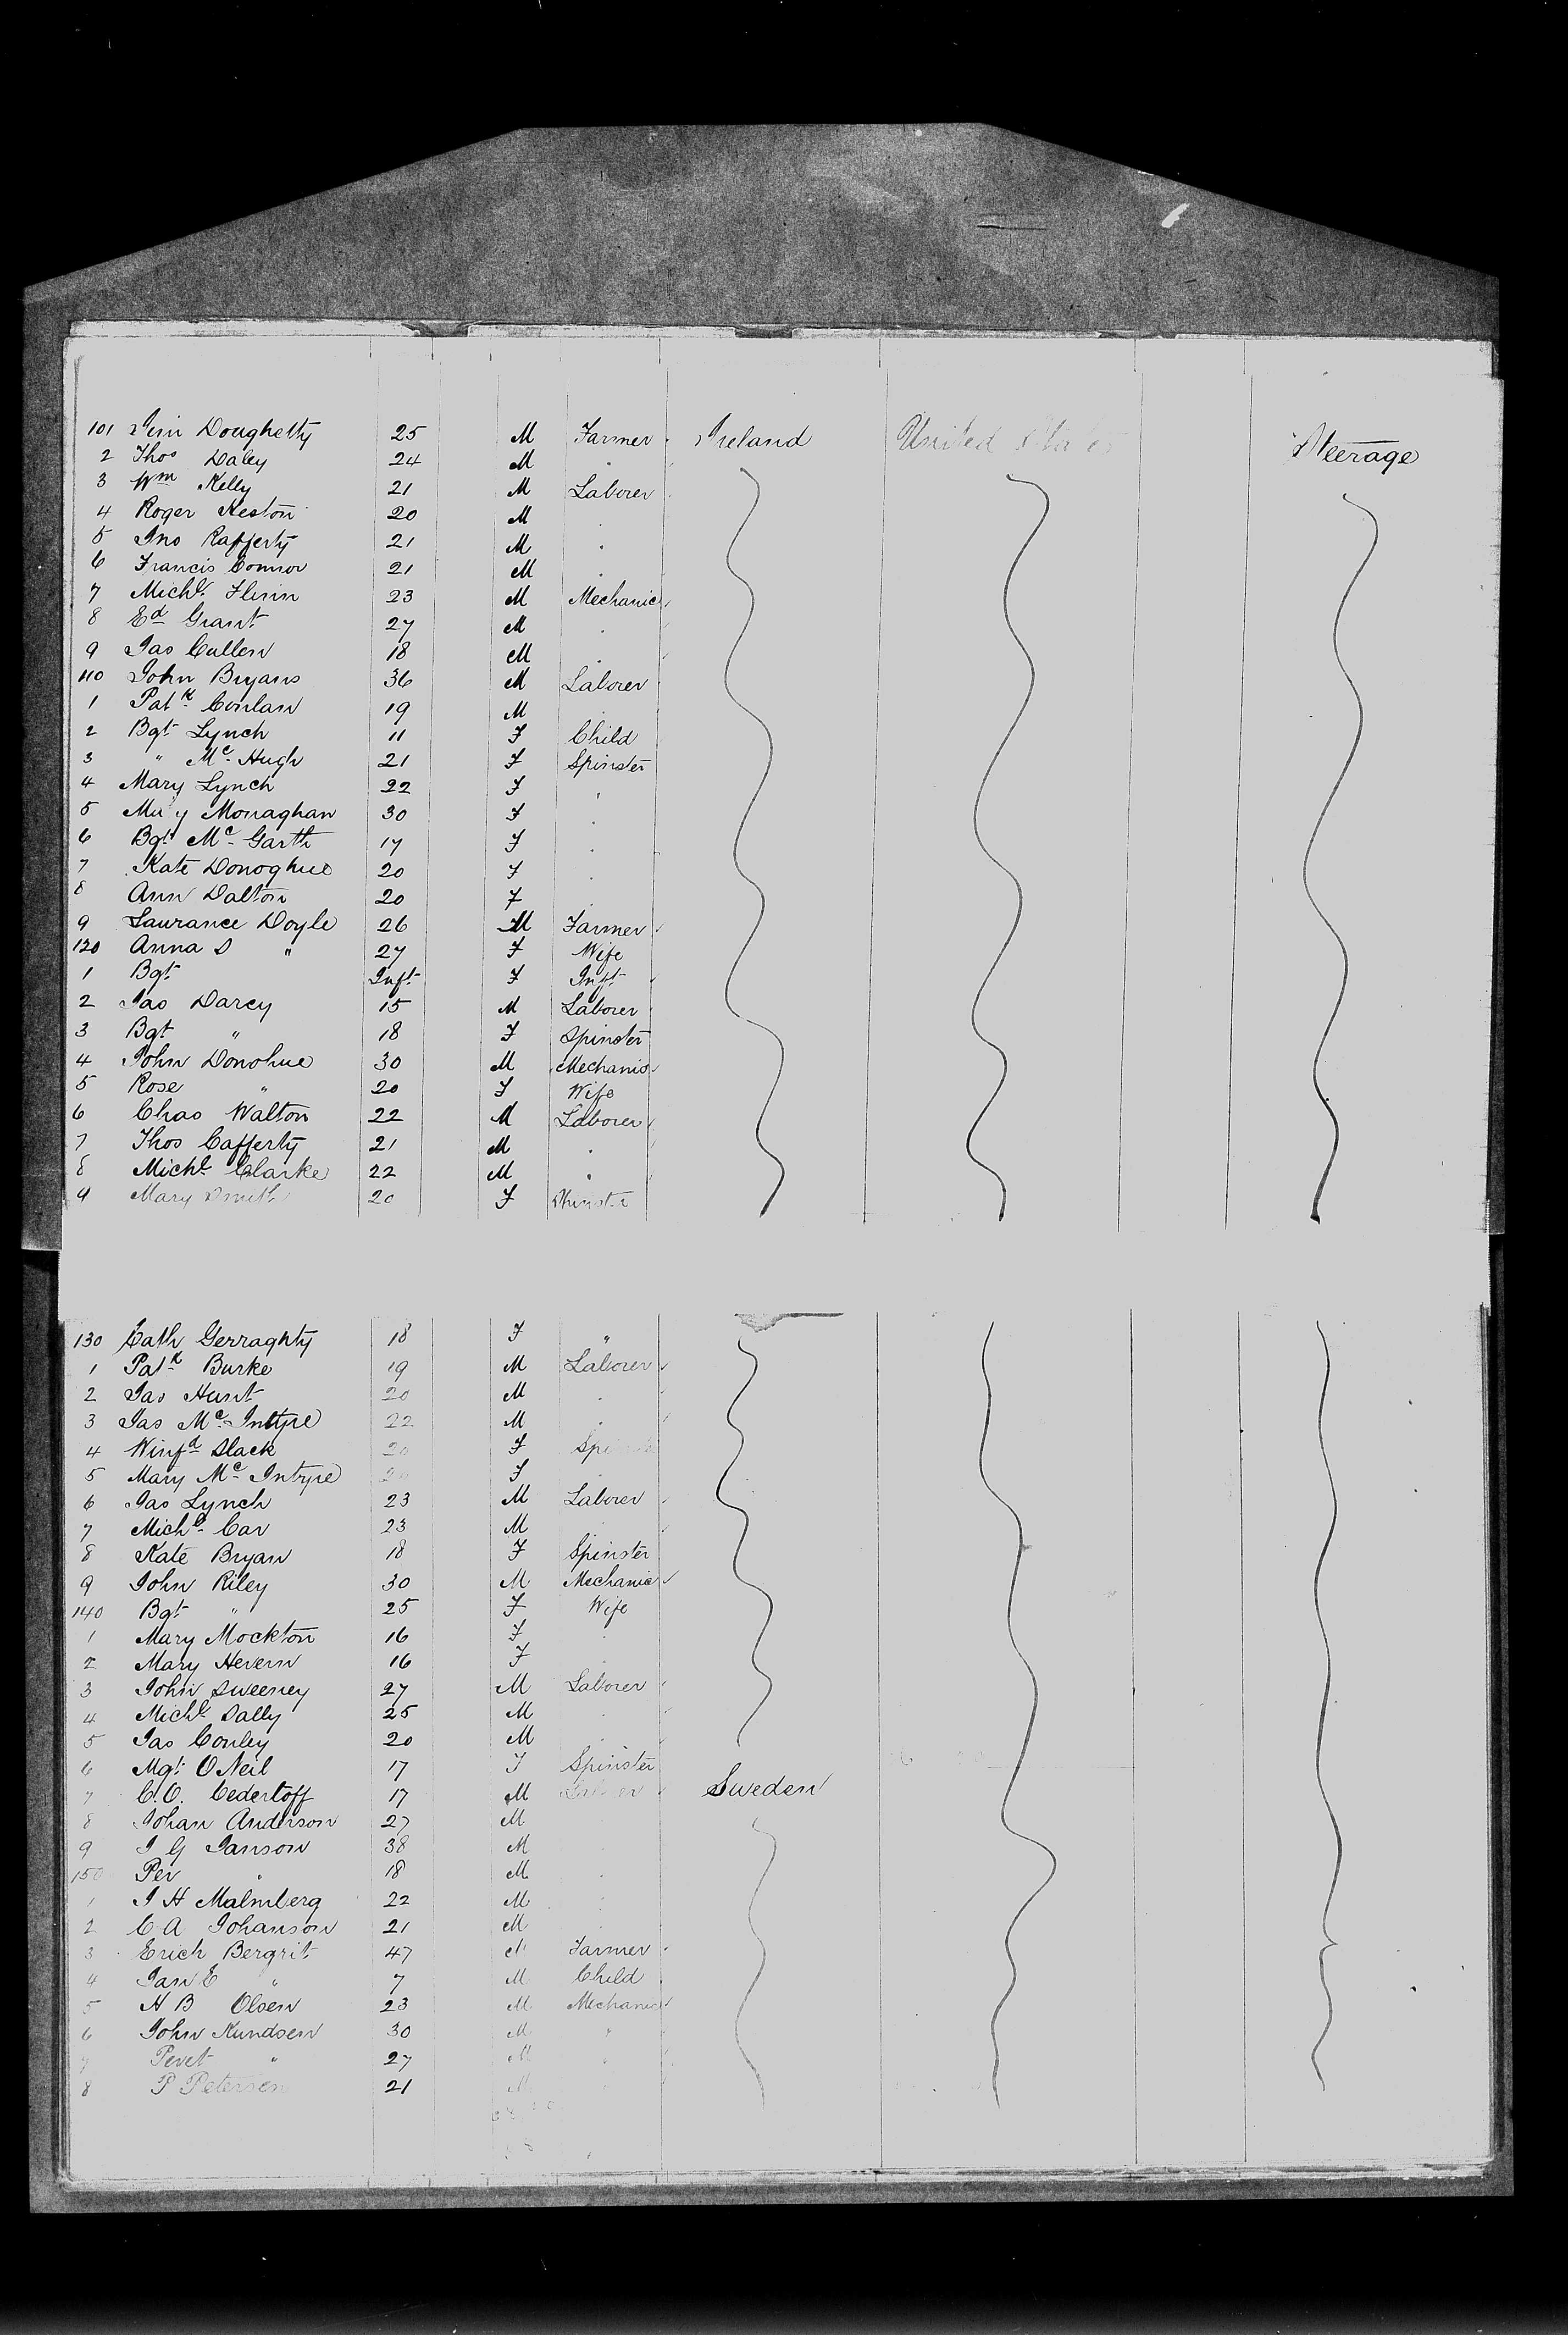 101 Jein Doughetty 25 M Farmer Ireland United States Steerage
2 Thos Daley 24 M .
3 Wm Kelly 21 M Laborer
4 Roger Heston 20 M .
5 Jno Rafferty 21 M .
6 Francis Connor 21 M .
7 Michl Flinn 23 M Mechanic
8 Ed Grant 27 M .
9 Jas Cullen 18 M .
110 John Bryans 36 M Laborer
1 Patk Conlan 19 M .
2 Bgt Lynch 11 F Child
3 " Mc Hugh 21 F Spinster
4 Mary Lynch 22 F "
5 Mary Monaghan 30 F .
6 Bgt Mc Garth 17 F .
7 Kate Donoghue 20 F .
8 Ann Dalton 20 F .
9 Laurance Doyle 26 M Farmer
120 Anna D " 27 F Wife
1 Bgt Inft F Inft
2 Jas Darcy 15 M Laborer
3 Bgt " 18 F Spinster
4 John Donohue 30 M Mechanic
5 Rose " 20 F Wife
6 Chas Walton 22 M Laborer
7 Thos Cafferty 21 M .
8 Michl Clarke 22 M .
9 Mary Smith 20 F Spinster
130 Cath Gerraghty 18 F "
1 Patk Burke 19 M Laborer
2 Jas Hunt 20 M .
3 Jas Mc Intyre 22 M .
4 Winfd Slack 20 F Spinster
5 Mary Mc Intyre 20 F .
6 Jas Lynch 23 M Laborer
7 Michl Car 23 M .
8 Kate Bryan 18 F Spinster
9 John Riley 30 M Mechanic
140 Bgt " 25 F Wife
1 Mary Mockton 16 F .
2 Mary Hevern 16 F .
3 John Sweeney 27 M Laborer
4 Michl Dally 25 M .
5 Jas Conley 20 M .
6 Mgt O Neil 17 F Spinster
7 C. O. Cedertoff 17 M Laborer Sweden
8 Johan Anderson 27 M .
9 J G Janson 38 M .
150 Per " 18 M .
1 J H Malmberg 22 M .
2 C A Johanson 21 M .
3 Erich Bergrit 47 M Farmer
4 Jan E " 7 M Child
5 H B Olsen 23 M Mechanic
6 John Kundsen 30 M "
7 Pevet " 27 M "
8 P Petersen 21 M "